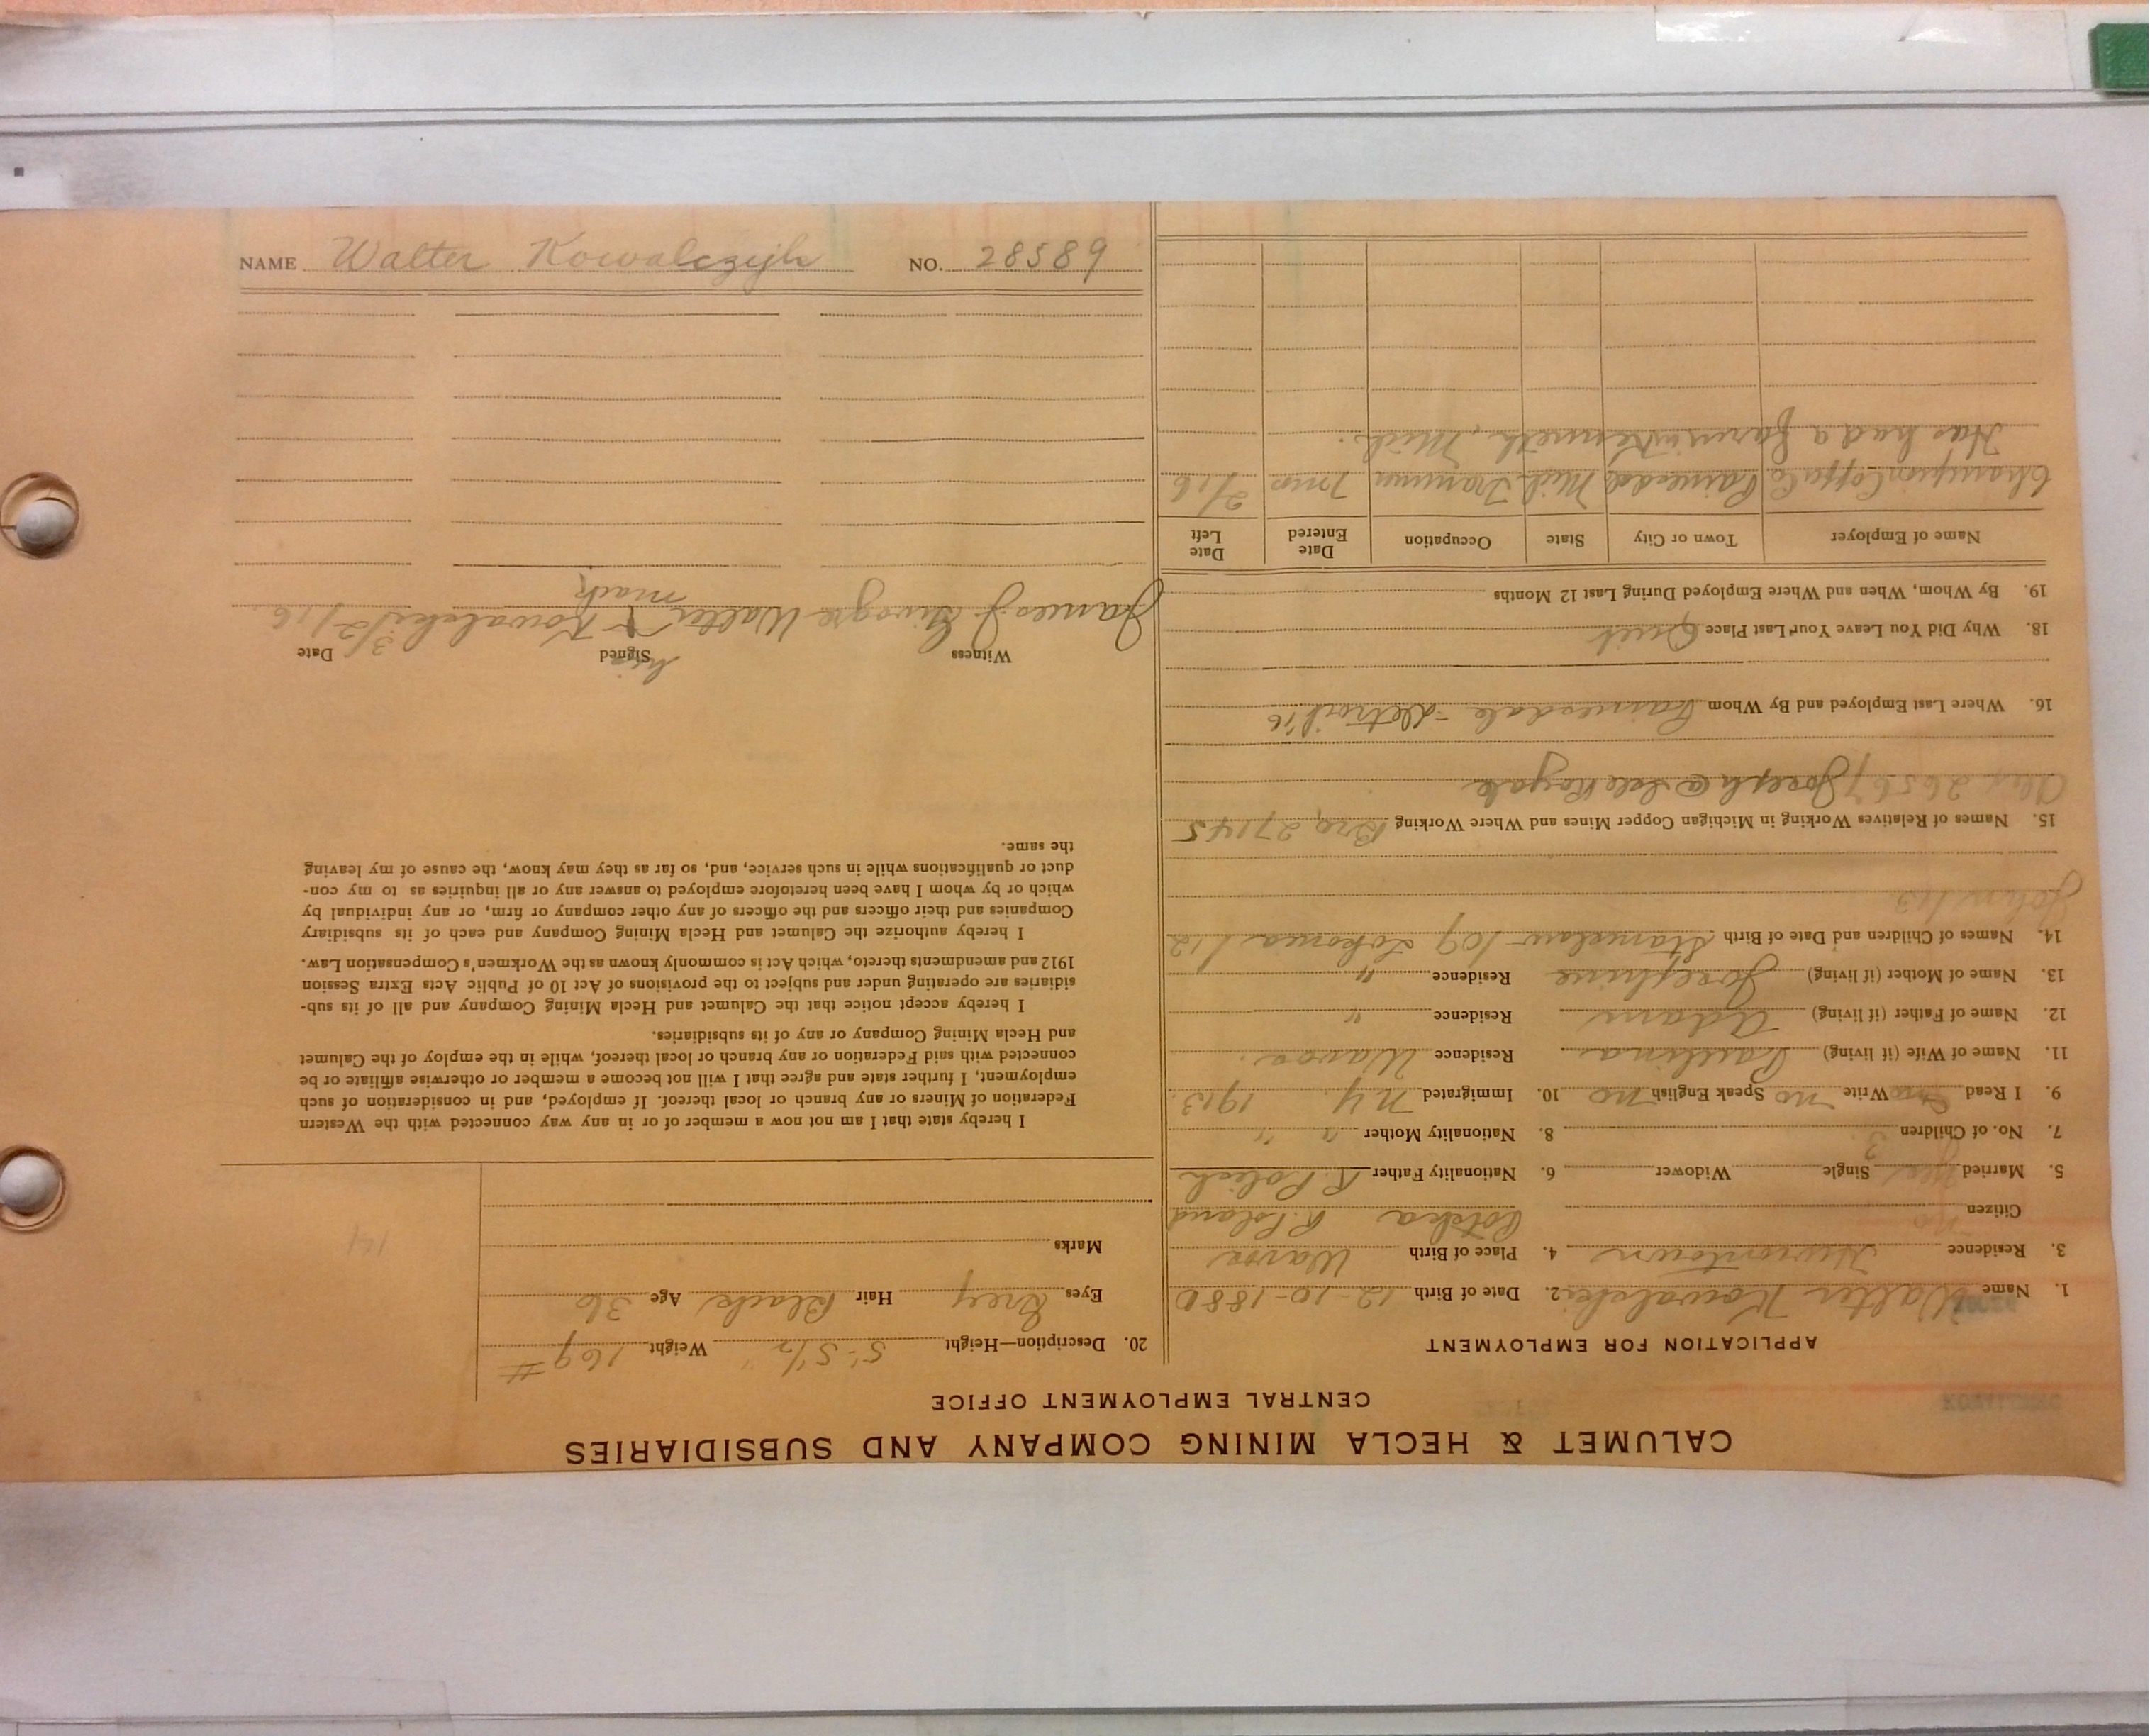 NAME Walter Kowalczyk NO. 28589
CALUMET & HECLA MINING COMPANY AND SUBSIDIARIES
CENTRAL EMPLOYMENT OFFICE
APPLICATION FOR EMPLOYMENT
1. Name Walter Kowalski 2. Date of Birth 12-10-1880
3. Residence Hurontown 4. Place of Birth Warsa
Citizen no R. Poland
5. Married yes Single Widower 6. Nationality Father R. Polish
7. No. of Children 3 8. Nationality Mother " "
9. I Read Write no Speak English no 10. Immigrated N.Y. 1913.
11. Name of Wife (if living) Paulina Residence
12. Name of Father (if living) Adam Residence "
13. Name of Mother (if living) Josephine Residence "
14. Names of Children and Date of Birth Stanislaw 109 /12
John 113
15. Names of Relatives Working in Michigan Copper Mines and Where Working Bro 27145
Alex 26567 Joseph @ Isle Royale
16. Where Last Employed and By Whom Painesdale - Detroit '16
18. Why Did You Leave Your Last Place Quit
19. By Whom, When and Where Employed During Last 12 Months
Name of Employer Town or City State Occupation Date Entered Date Left
Champion Copper Co Painesdale Mich Trammer 1 mo 2/16
Has had a farm in Kenneth, Mich.
20. Description—Height 5'-5 1/2" Weight 169 #
Eyes Grey Hair Black Age 36
Marks
14
I hereby state that I am not now a member of or in any way connected with the Western
Federation of Miners or any branch or local thereof. If employed, and in consideration of such
employment, I further state and agree that I will not become a member or otherwise affiliate or be
connected with said Federation or any branch or local thereof, while in the employ of the Calumet
and Hecla Mining Company or any of its subsidiaries.
I hereby accept notice that the Calumet and Hecla Mining Company and all of its sub-
sidiaries are operating under and subject to the provisions of Act 10 of Public Acts Extra Session
1912 and amendments thereto, which Act is commonly known as the Workmen's Compensation Law.
I hereby authorize the Calumet and Hecla Mining Company and each of its subsidiary
Companies and their officers and the officers of any other company or firm, or any individual by
which or by whom I have been heretofore employed to answer any or all inquiries as to my con-
duct or qualifications while in such service, and, so far as they may know, the cause of my leaving
the same.
Witness Signed Date
his
James J. Walter X Kowalski 3/2/16
mark